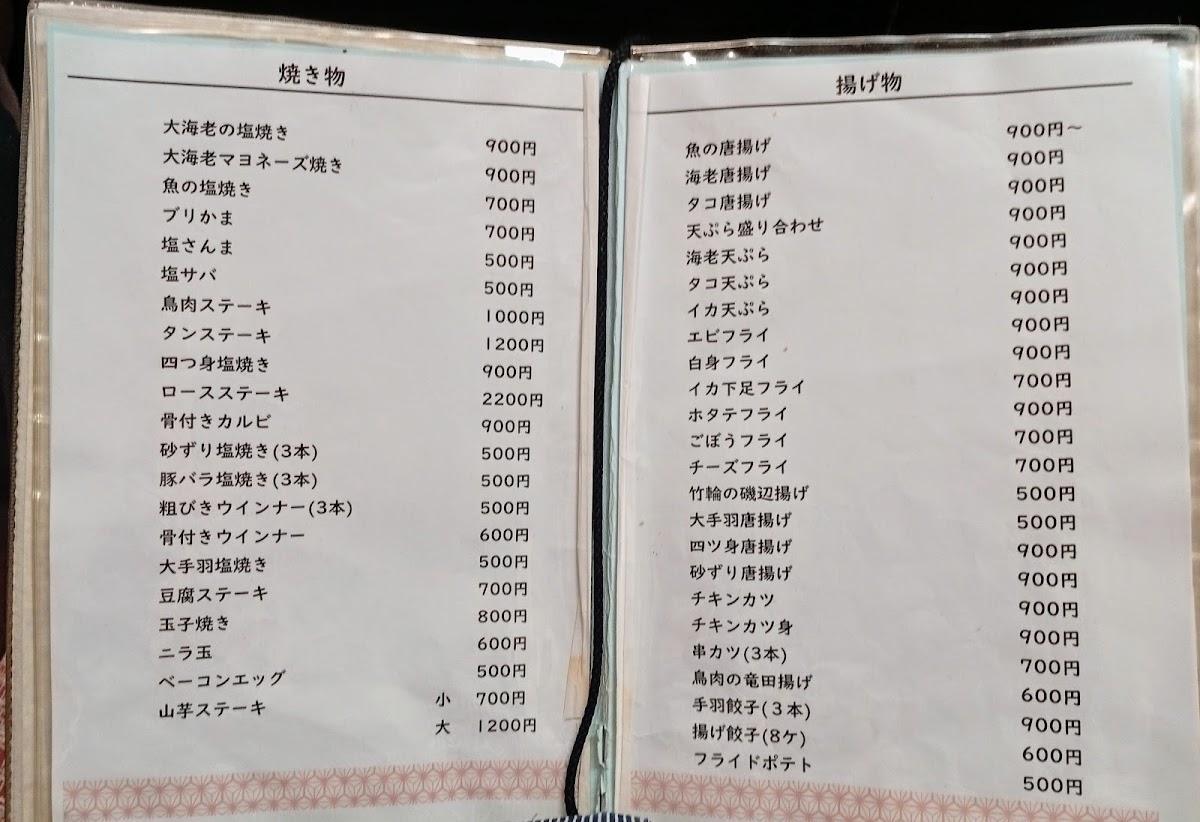 焼き物
大海老の塩焼き 900円
大海老マヨネーズ焼き 900円
魚の塩焼き 700円
ブリかま 700円
塩さんま 500円
塩サバ 500円
鳥肉ステーキ 1000円
タンステーキ 1200円
四つ身塩焼き 900円
ロースステーキ 2200円
骨付きカルビ 900円
砂ずり塩焼き(3本) 500円
豚バラ塩焼き(3本) 500円
粗びきウインナー(3本) 500円
骨付きウインナー 600円
大手羽塩焼き 500円
豆腐ステーキ 700円
玉子焼き 800円
ニラ玉 600円
ベーコンエッグ 500円
山芋ステーキ 小 700円
大 1200円
揚げ物
魚の唐揚げ 900円～
海老唐揚げ 900円
タコ唐揚げ 900円
天ぷら盛り合わせ 900円
海老天ぷら 900円
タコ天ぷら 900円
イカ天ぷら 900円
エビフライ 900円
白身フライ 900円
イカ下足フライ 700円
ホタテフライ 900円
ごぼうフライ 700円
チーズフライ 700円
竹輪の磯辺揚げ 500円
大手羽唐揚げ 500円
四ツ身唐揚げ 900円
砂ずり唐揚げ 900円
チキンカツ 900円
チキンカツ身 900円
串カツ(3本) 700円
鳥肉の竜田揚げ 600円
手羽餃子(３本) 900円
揚げ餃子(8ケ) 600円
フライドポテト 500円